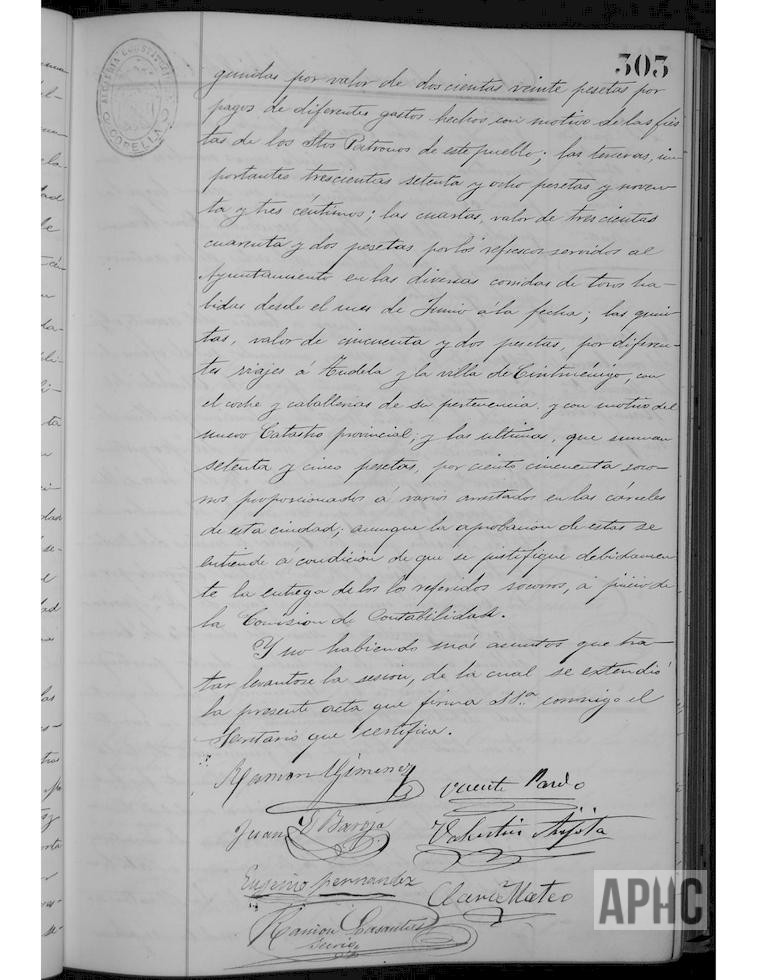 303
ALCALDIA CONSTITUCIONAL
CORELLA
gundas por valor de doscientas veinte pesetas por
pagos de diferentes gastos hechos con motivo de las fies
tas de los Stos Patronos de este pueblo; las terceras, im-
portantes trescientas setenta y ocho pesetas y noven-
ta y tres céntimos; las cuartas, valor de trescientas
cuarenta y dos pesetas por los refrescos servidos al
Ayuntamiento en las diversas corridas de toros ha-
bidas desde el mes de Junio á la fecha; las quin
tas, valor de cincuenta y dos pesetas, por diferen-
tes viajes á Tudela y la villa de Cintruénigo, con
el coche y caballerias de su pertenencia y con motivo del
nuevo Catastro provincial; y las ultimas, que suman
setenta y cinco pesetas, por ciento cincuenta soco-
rros proporcionados á varios arrestados en las cárceles
de esta ciudad; aunque la aprobacion de estas se
entiende á condición de que se justifique debidamen
te la entrega de los los referidos socorros, á juicio de
la Comision de Contabilidad.
Y no habiendo más asuntos que tra-
tar levantose la sesion, de la cual se extendió
la presente acta que firma SSª conmigo el
Secretario que certifica.
Ramon Gimenez
Vicente Pardo
Juan
Valentin
Eugenio Fernandez
Mateo
Ramon
APHC